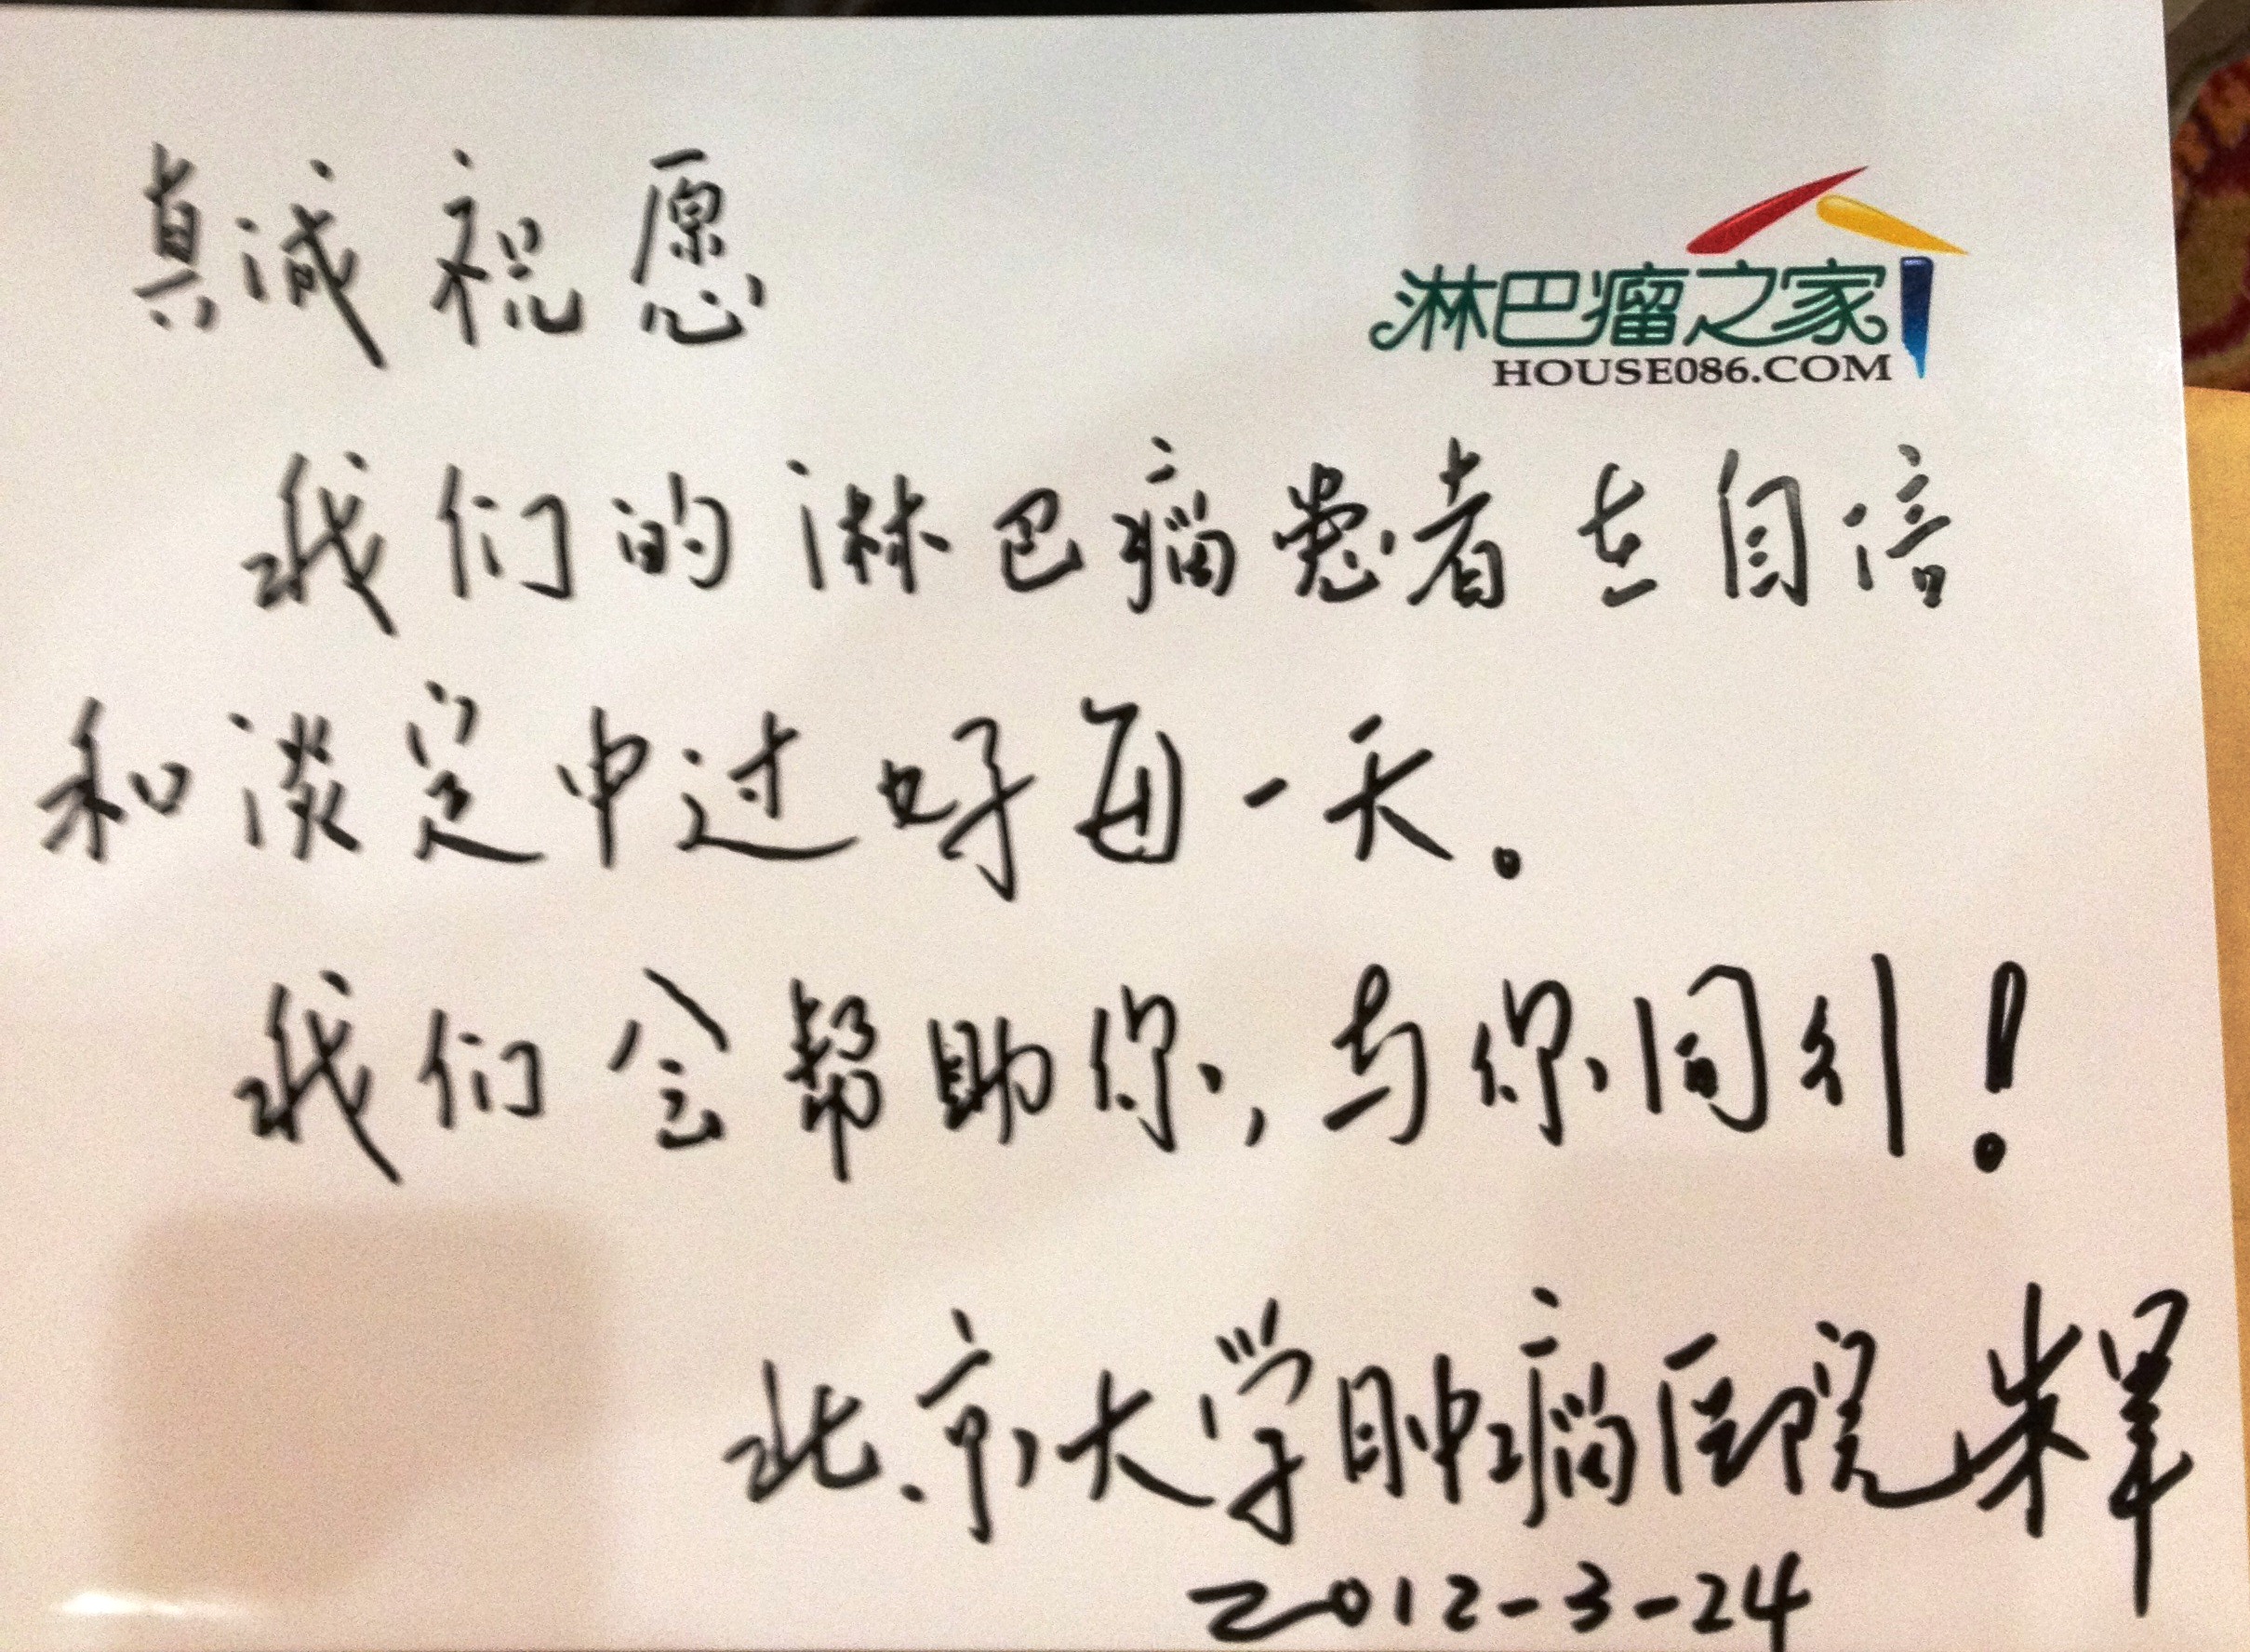 真诚祝愿
淋巴瘤之家
HOUSE086.COM
我们的淋巴瘤患者在自信
和淡定中过好每一天。
我们会帮助你,与你同行!
北京大学肿瘤医院 朱軍
2012-3-24